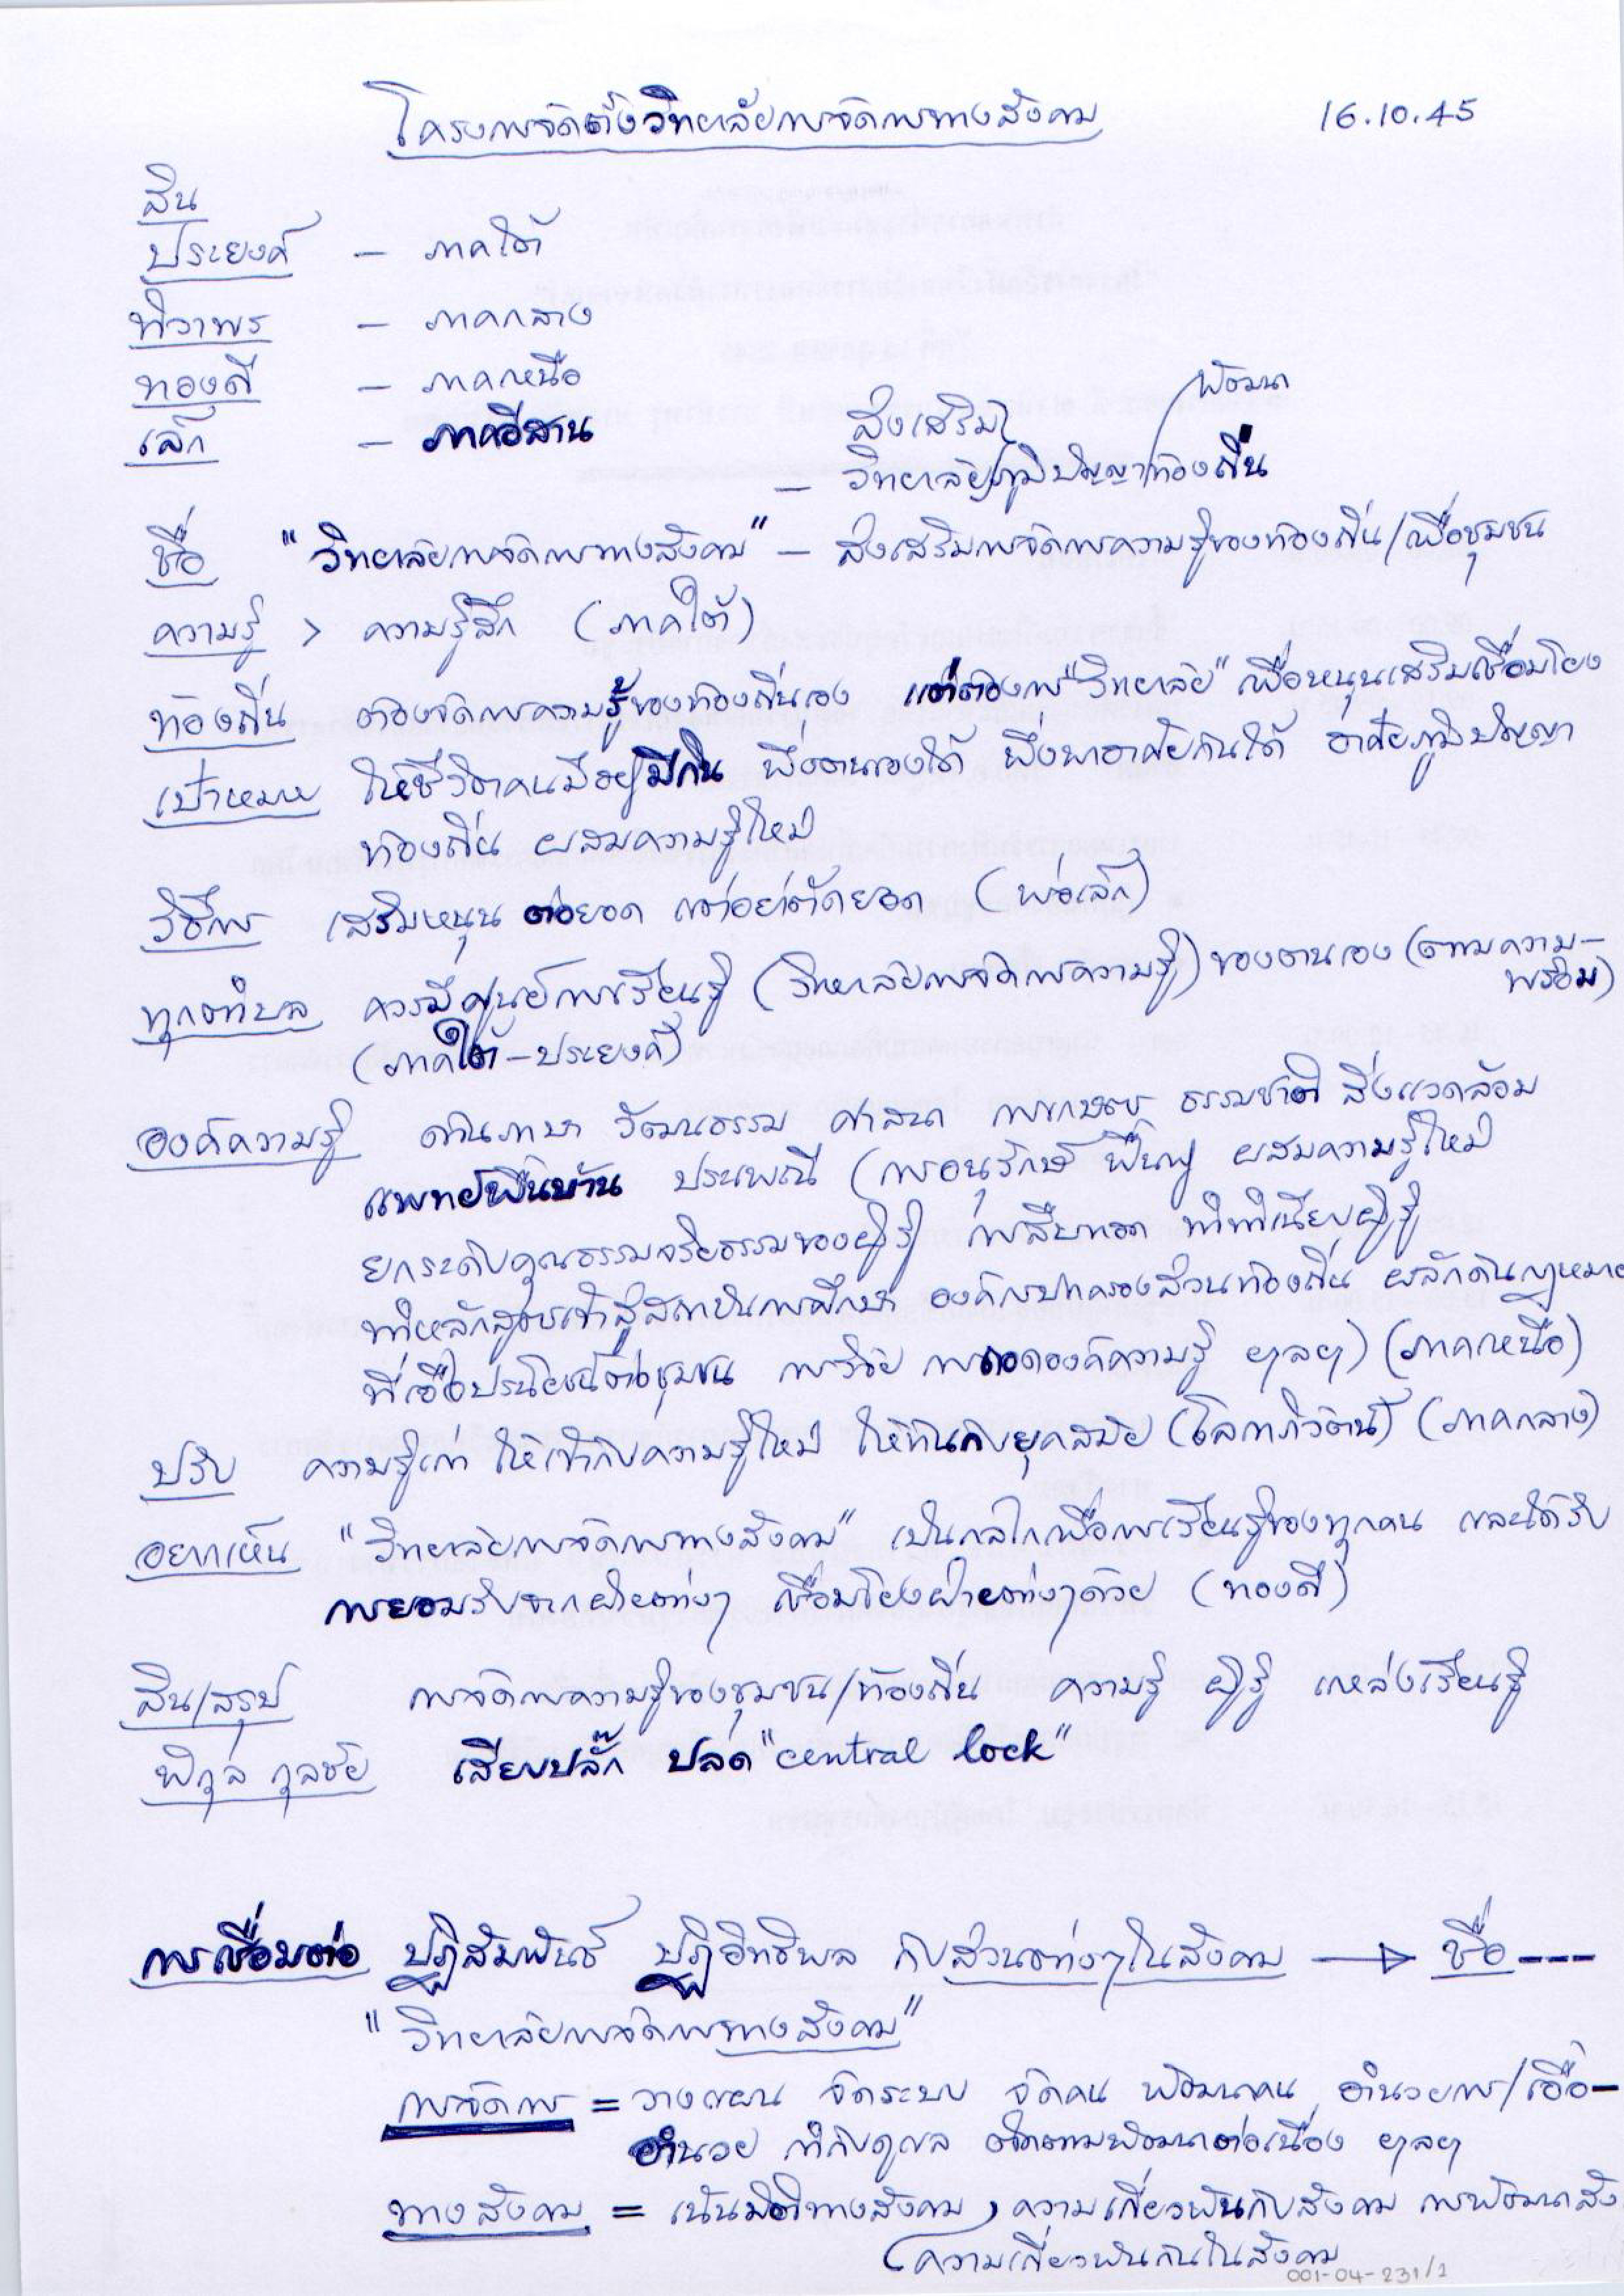 โครงการจัดตั้งวิทยาลัยการจัดการทางสังคม 16.10.45
สิน
ประยงค์ – ภาคใต้
ทิวาพร – ภาคกลาง
ทองดี – ภาคเหนือ
เล็ก – ภาคอีสาน
ส่งเสริม พัฒนา
– วิทยาลัย/ภูมิปัญญาท้องถิ่น
ชื่อ "วิทยาลัยการจัดการทางสังคม" – ส่งเสริมการจัดการความรู้ของท้องถิ่น/เพื่อชุมชน
ความรู้ > ความรู้สึก (ภาคใต้)
ท้องถิ่น ต้องจัดการความรู้ของท้องถิ่นเอง แต่ต้องการ "วิทยาลัย" เพื่อหนุนเสริมเชื่อมโยง
เป้าหมาย ให้ชีวิตคนมีอยู่มีกิน พึ่งตนเองได้ พึ่งพาอาศัยกันได้ อาศัยภูมิปัญญา
ท้องถิ่น ผสมความรู้ใหม่
วิธีการ เสริมหนุน ต่อยอด แต่อย่าตัดยอด (พ่อเล็ก)
ทุกตำบล ควรมีศูนย์การเรียนรู้ (วิทยาลัยการจัดการความรู้) ของตนเอง (ตามความ–
พร้อม)
(ภาคใต้–ประยงค์)
องค์ความรู้ ด้านภาษา วัฒนธรรม ศาสนา การเกษตร ธรรมชาติ สิ่งแวดล้อม
แพทย์พื้นบ้าน ประเพณี (การอนุรักษ์ ฟื้นฟู ผสมความรู้ใหม่
ยกระดับคุณธรรมจริยธรรมของผู้รู้ การสืบทอด ทำทำเนียบผู้รู้
ทำหลักสูตรเข้าสู่สถาบันการศึกษา องค์กรปกครองส่วนท้องถิ่น ผลักดันกฎหมาย
ที่เอื้อประโยชน์ต่อชุมชน การวิจัย การถอดองค์ความรู้ ฯลฯ) (ภาคเหนือ)
ปรับ ความรู้เก่า ให้เข้ากับความรู้ใหม่ ให้ทันกับยุคสมัย (โลกาภิวัตน์) (ภาคกลาง)
อยากเห็น "วิทยาลัยการจัดการทางสังคม" เป็นกลไกเพื่อการเรียนรู้ของทุกคน และได้รับ
การยอมรับจากฝ่ายต่างๆ เชื่อมโยงฝ่ายต่างๆด้วย (ทองดี)
สิน/สรุป การจัดการความรู้ของชุมชน/ท้องถิ่น ความรู้ ผู้รู้ แหล่งเรียนรู้
พิกุล กุลชัย เสียบปลั๊ก ปลด "central lock"
การเชื่อมต่อ ปฏิสัมพันธ์ ปฏิอิทธิพล กับส่วนต่างๆในสังคม → ชื่อ----
"วิทยาลัยการจัดการทางสังคม"
การจัดการ = วางแผน จัดระบบ จัดคน พัฒนาคน อำนวยการ/เอื้อ–
อำนวย กำกับดูแล ติดตามพัฒนาต่อเนื่อง ฯลฯ
ทางสังคม = เน้นมิติทางสังคม, ความเกี่ยวพันกับสังคม การพัฒนาสัง
(ความเกี่ยวพันกันในสังคม
001-04-231/1